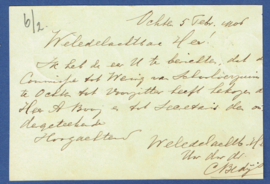 6/2.
Ochte 5 Feb. 1906
Weledelachtbar Heer!
Ik heb de eer U te berichte, dat de
Commissie tot Wering van Schoolverzuim
te Ochte tot Voorzitter heeft
Heer A en tot Secretaris de
ondergeteekende
Hoogachtend
Weledelachtb.
Uw dw. dr.